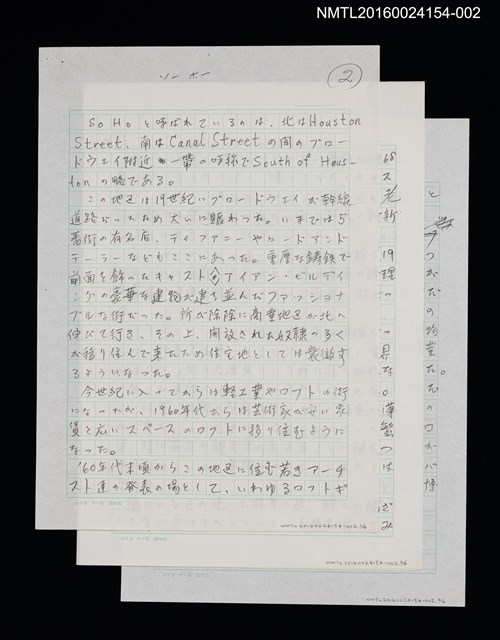 NMTL20160024154-002
ソーホー
②
SoHoと呼ばれているのは、北はHouston
Street、南はCanal Streetの間のブロー
ドウエイ附近一帯の呼称でSouth of Hous-
tonの略である。
この地区は19世紀にブロードウエイが幹線
道路だったため大いに賑わった。いまでは5
番街の有名店、ティファニーやロードアンド
テーラーなどもここにあった。重厚な鋳鉄で
前面を飾ったキャストアイアン・ビルディ
ングの豪華な建物が建ち並んだファッショナ
ブルな街だった。所が除除に商業地区が北へ
伸びて行き、その上、開放された奴隷の多く
が移り住んで来たため住宅地としては衰微す
るようになった。
今世紀に入ってからは軽工業やロフトの街
になったが、1960年代からは芸術家が安い家
賃と広いスペースのロフトに移り住むように
なった。
'60年代末頃からこの地区に住む若きアーチ
スト達の発表の場として、いわゆるロフトギ
NMTL20160024154-002_3/6
NMTL20160024154-002_4/6
NMTL20160024154-002_5/6